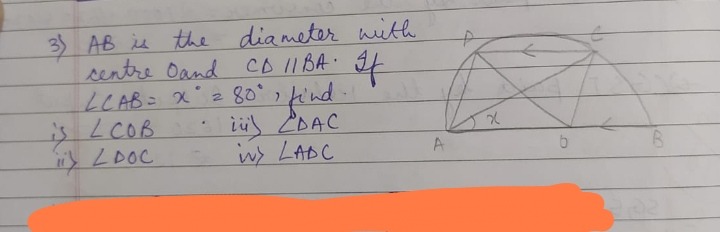 3) AB is the diameter with
centre O and CD || BA. If
∠CAB = x° = 80°, find.
i) ∠COB iii) ∠DAC
ii) ∠DOC iv) ∠ADC
D C
x
A O B